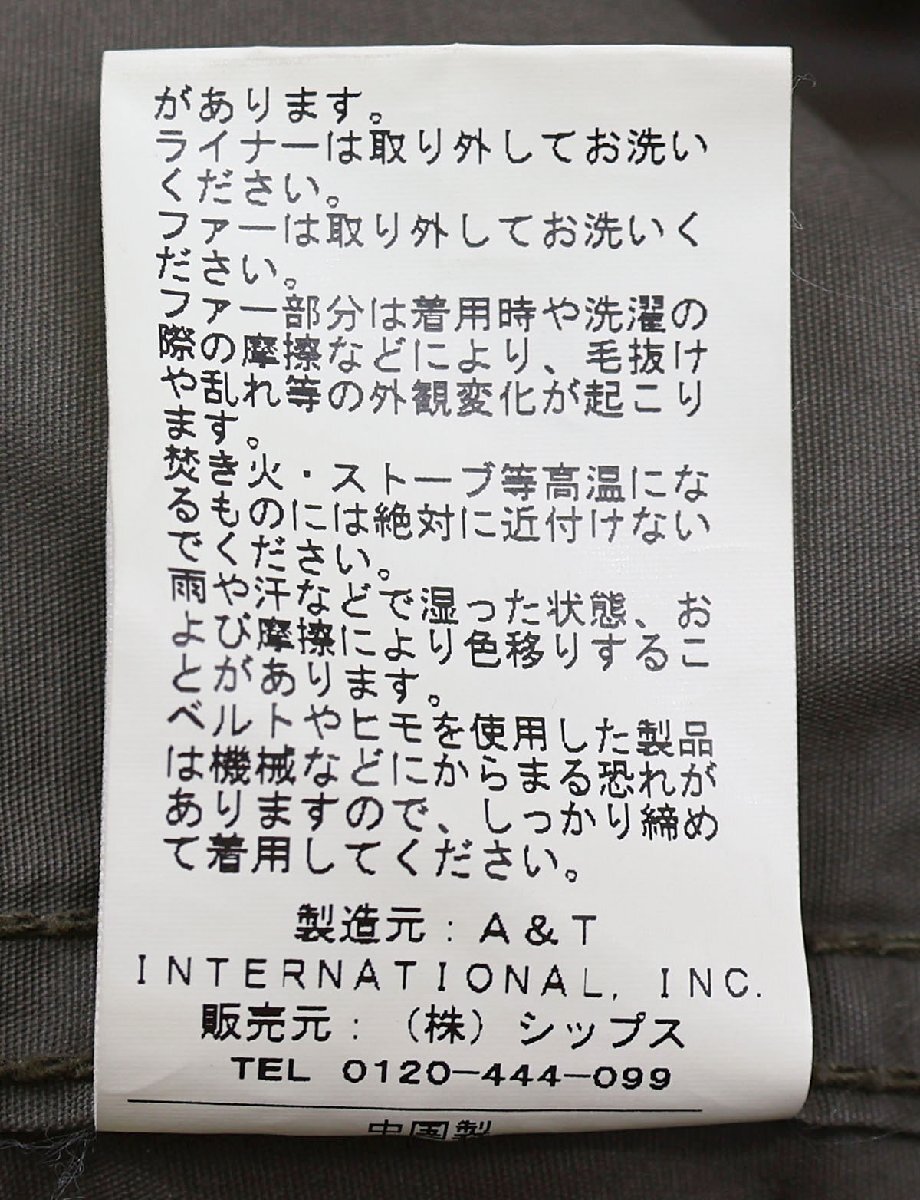 があります。
ライナーは取り外してお洗い
ください。
ファーは取り外してお洗いく
ださい。
ファー部分は着用時や洗濯の
際の摩擦などにより、毛抜け
や乱れ等の外観変化が起こり
ます。
焚き火・ストーブ等高温にな
るものには絶対に近付けない
でください。
雨や汗などで湿った状態、お
よび摩擦により色移りするこ
とがあります。
ベルトやヒモを使用した製品
は機械などにからまる恐れが
ありますので、しっかり締め
て着用してください。
製造元：A&T
INTERNATIONAL, INC.
販売元：（株）シップス
TEL 0120-444-099
中国製